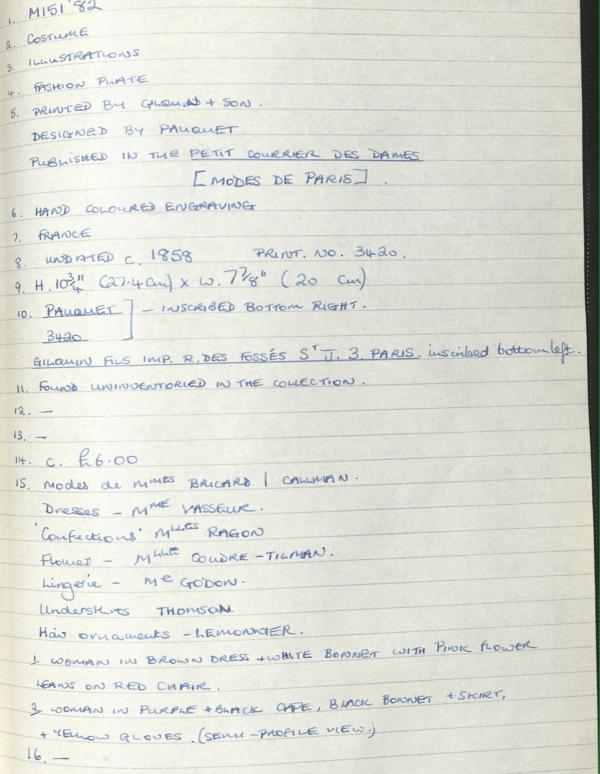 1. M151 '82
2. COSTUME
3. ILLUSTRATIONS
4. FASHION PLATE
5. PRINTED BY GILQUIN + SON.
DESIGNED BY PAUQUET
PUBLISHED IN THE PETIT COURRIER DES DAMES
[MODES DE PARIS].
6. HAND COLOURED ENGRAVING
7. FRANCE
8. UNDATED c. 1858 PRINT. NO. 3420.
9. H. 10 3/4" (27.4cm) x W. 7 7/8" (20 cm)
10. PAUQUET ] - INSCRIBED BOTTOM RIGHT.
3420
GILQUIN FILS IMP. R. DES FOSSÉS ST J. 3. PARIS. inscribed bottom left.
11. FOUND UNINVENTORIED IN THE COLLECTION.
12. —
13. —
14. c. £6.00
15. Modes de MMES BRICARD / CALLMAN.
Dresses - MME VASSEUR.
'Confections' MLLES RAGON
Flower - MLLE COUDRE-TILMAN.
Lingerie - Me GODON.
Underskirts THOMSON
Hair ornaments - LEMONNIER.
1 WOMAN IN BROWN DRESS + WHITE BONNET WITH PINK FLOWER
LEANS ON RED CHAIR.
2 WOMAN IN PURPLE + BLACK CAPE, BLACK BONNET + SKIRT,
+ YELLOW GLOVES. (SEMI-PROFILE VIEW.)
16. —